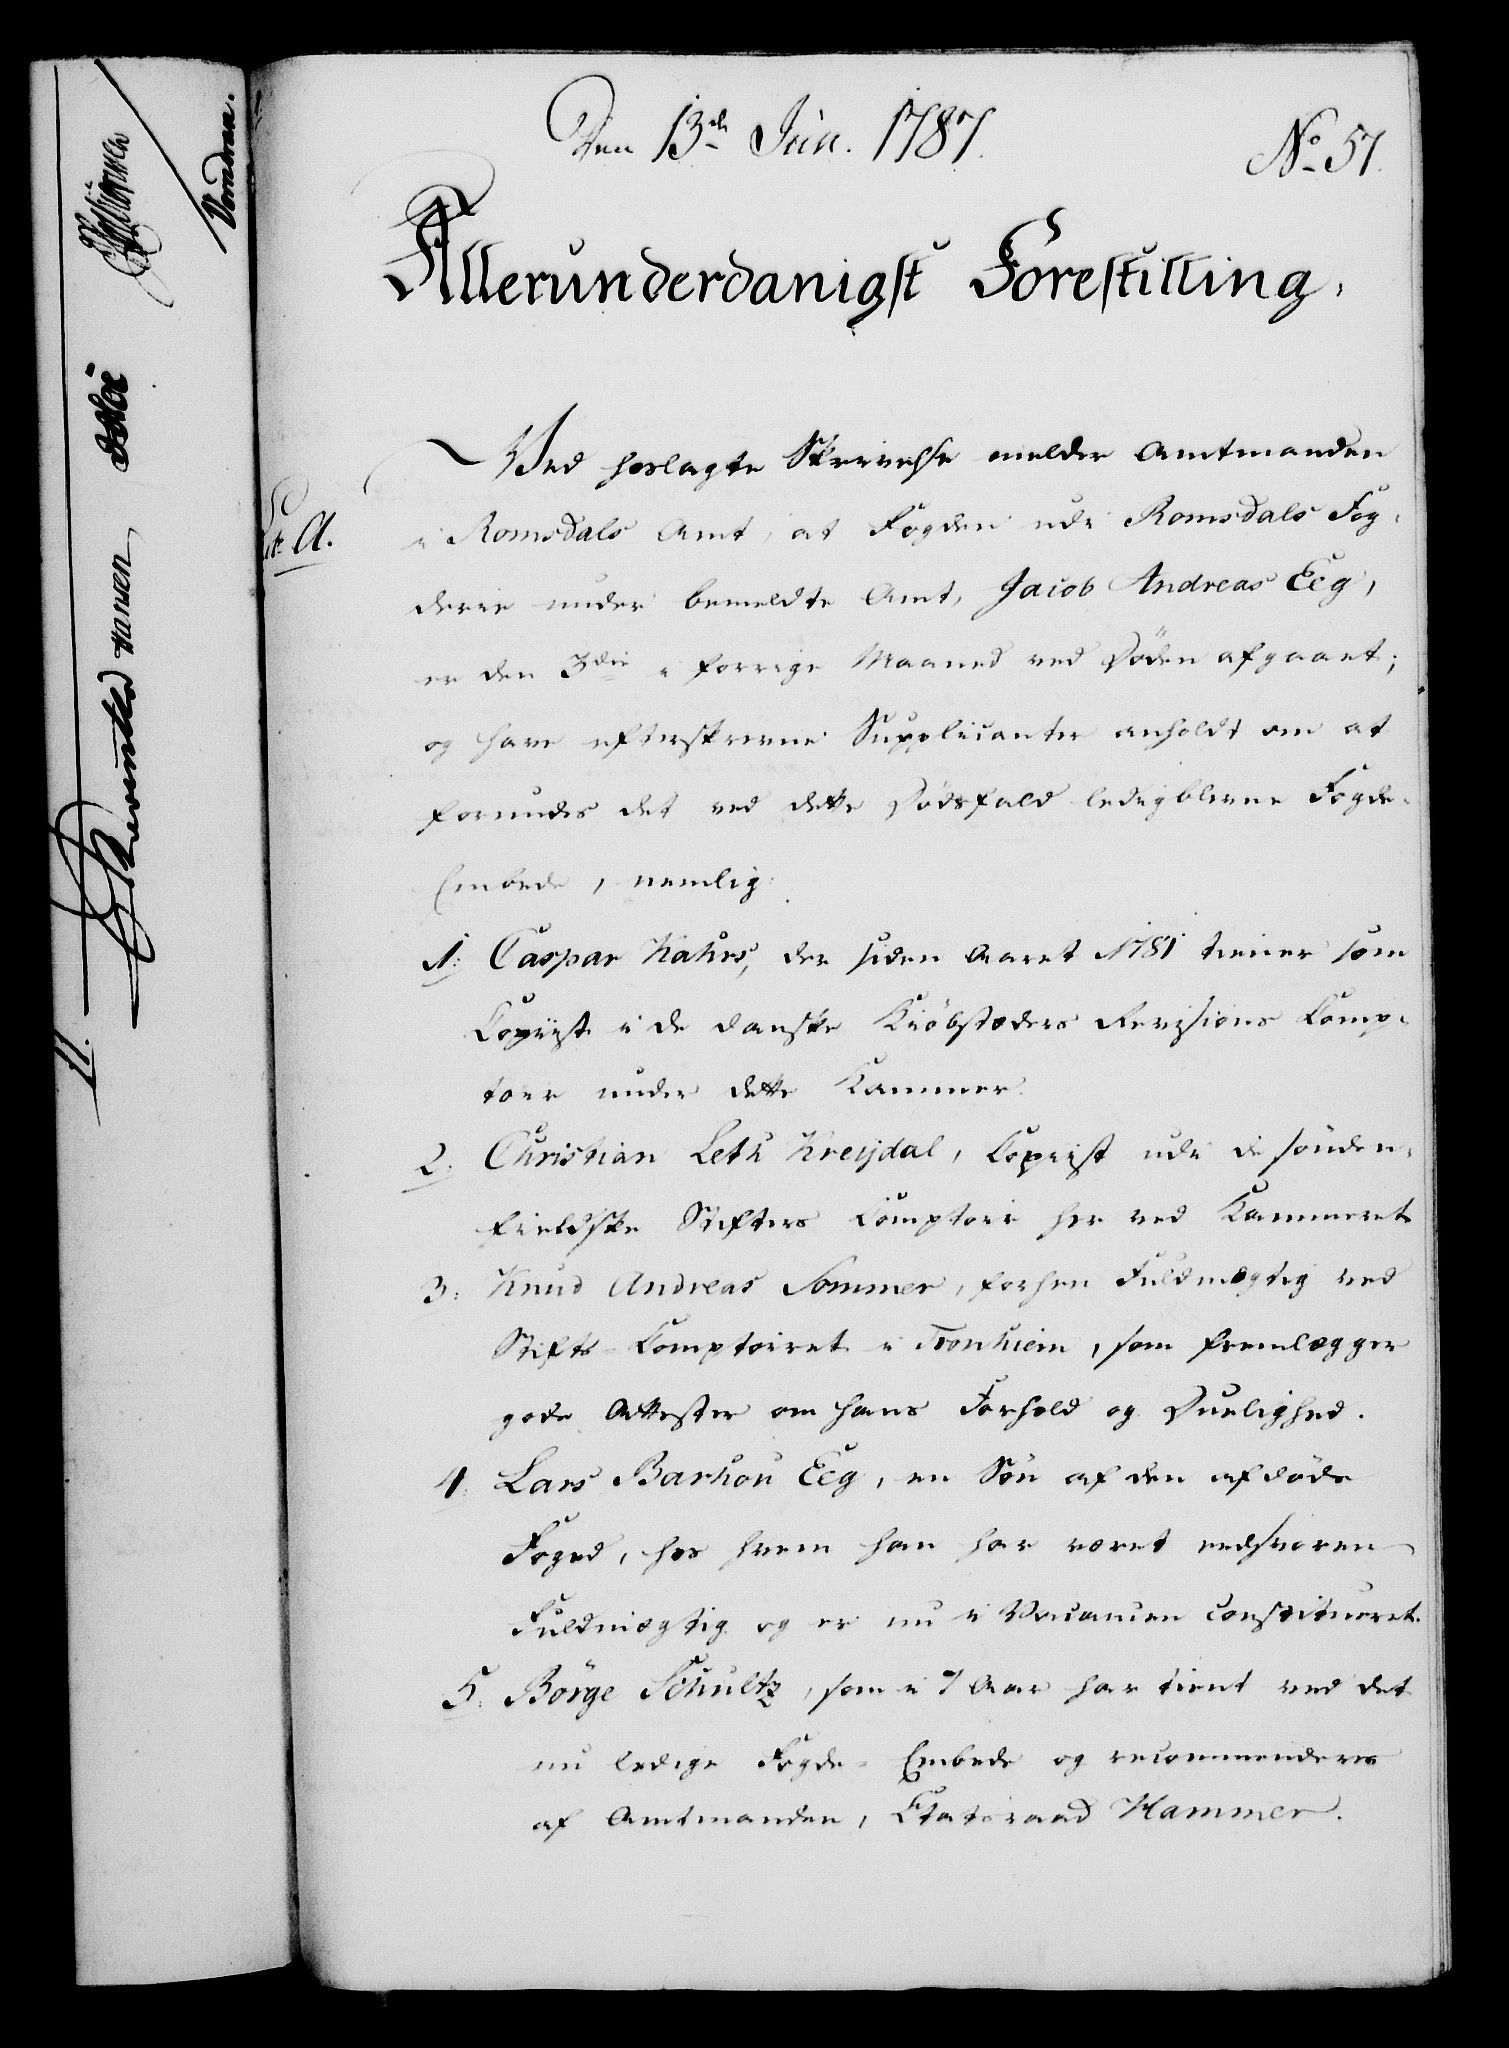 Den 13de Jun. 1787.
No 57.
Allerunderdanigst Forestilling,
Ved hoslagte Skrivelse melder Amtmanden
Litr A.
i Romsdals Amt, at Fogden udi Romsdals Fog-
derie under bemeldte Amt, Jacob Andreas Eeg,
er den 3die i forrige Maaned ved Døden afgaaet;
og have efterskrevne Supplicanter anholdt om at
forundes det ved dette Dødsfald ledigblevne Fogde-
Embede, nemlig:
1: Caspar Kahrs, der siden Aaret 1781 tiener som
Copiist i de danske Kiöbstæders Revisions Comp-
toir under dette Kammer.
2. Christian Leth Kreydal, Copiist udi de sönden-
fieldske Stifters Comptoir her ved Kammeret
3: Knud Andreas Sommer, forhen Fuldmægtig ved
Stifts-Comptoiret i Tronhiem, som fremlægger
gode Attester om hans Forhold og Duelighed.
4. Lars Barhou Eeg, en Sön af den afdöde
Foged, hos hvem han har været eedsvoren
Fuldmægtig og er nu i Vacancen constitueret.
5. Börge Schultz, som i 7 Aar har tient ved det
nu ledige Fogde-Embede og recommenderes
af Amtmanden, Etatsraad Hammer.